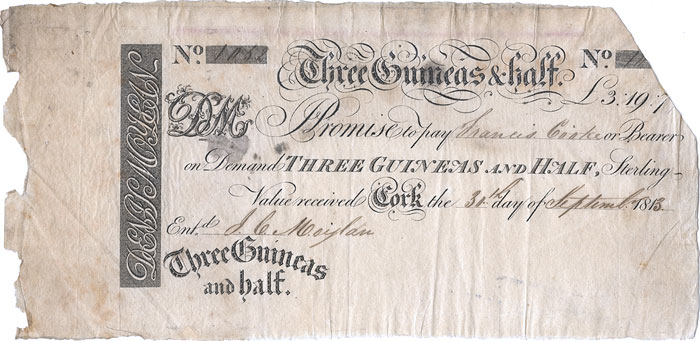 No.
No.
Three Guineas & half.
£3:19:7
DENIS MOYLAN
DM
I Promise to pay Francis Cooke or Bearer
on Demand THREE GUINEAS AND HALF, Sterling
Value received Cork the 30th day of Septembr 1813
Entd J. C. Moylan
Three Guineas
and half.